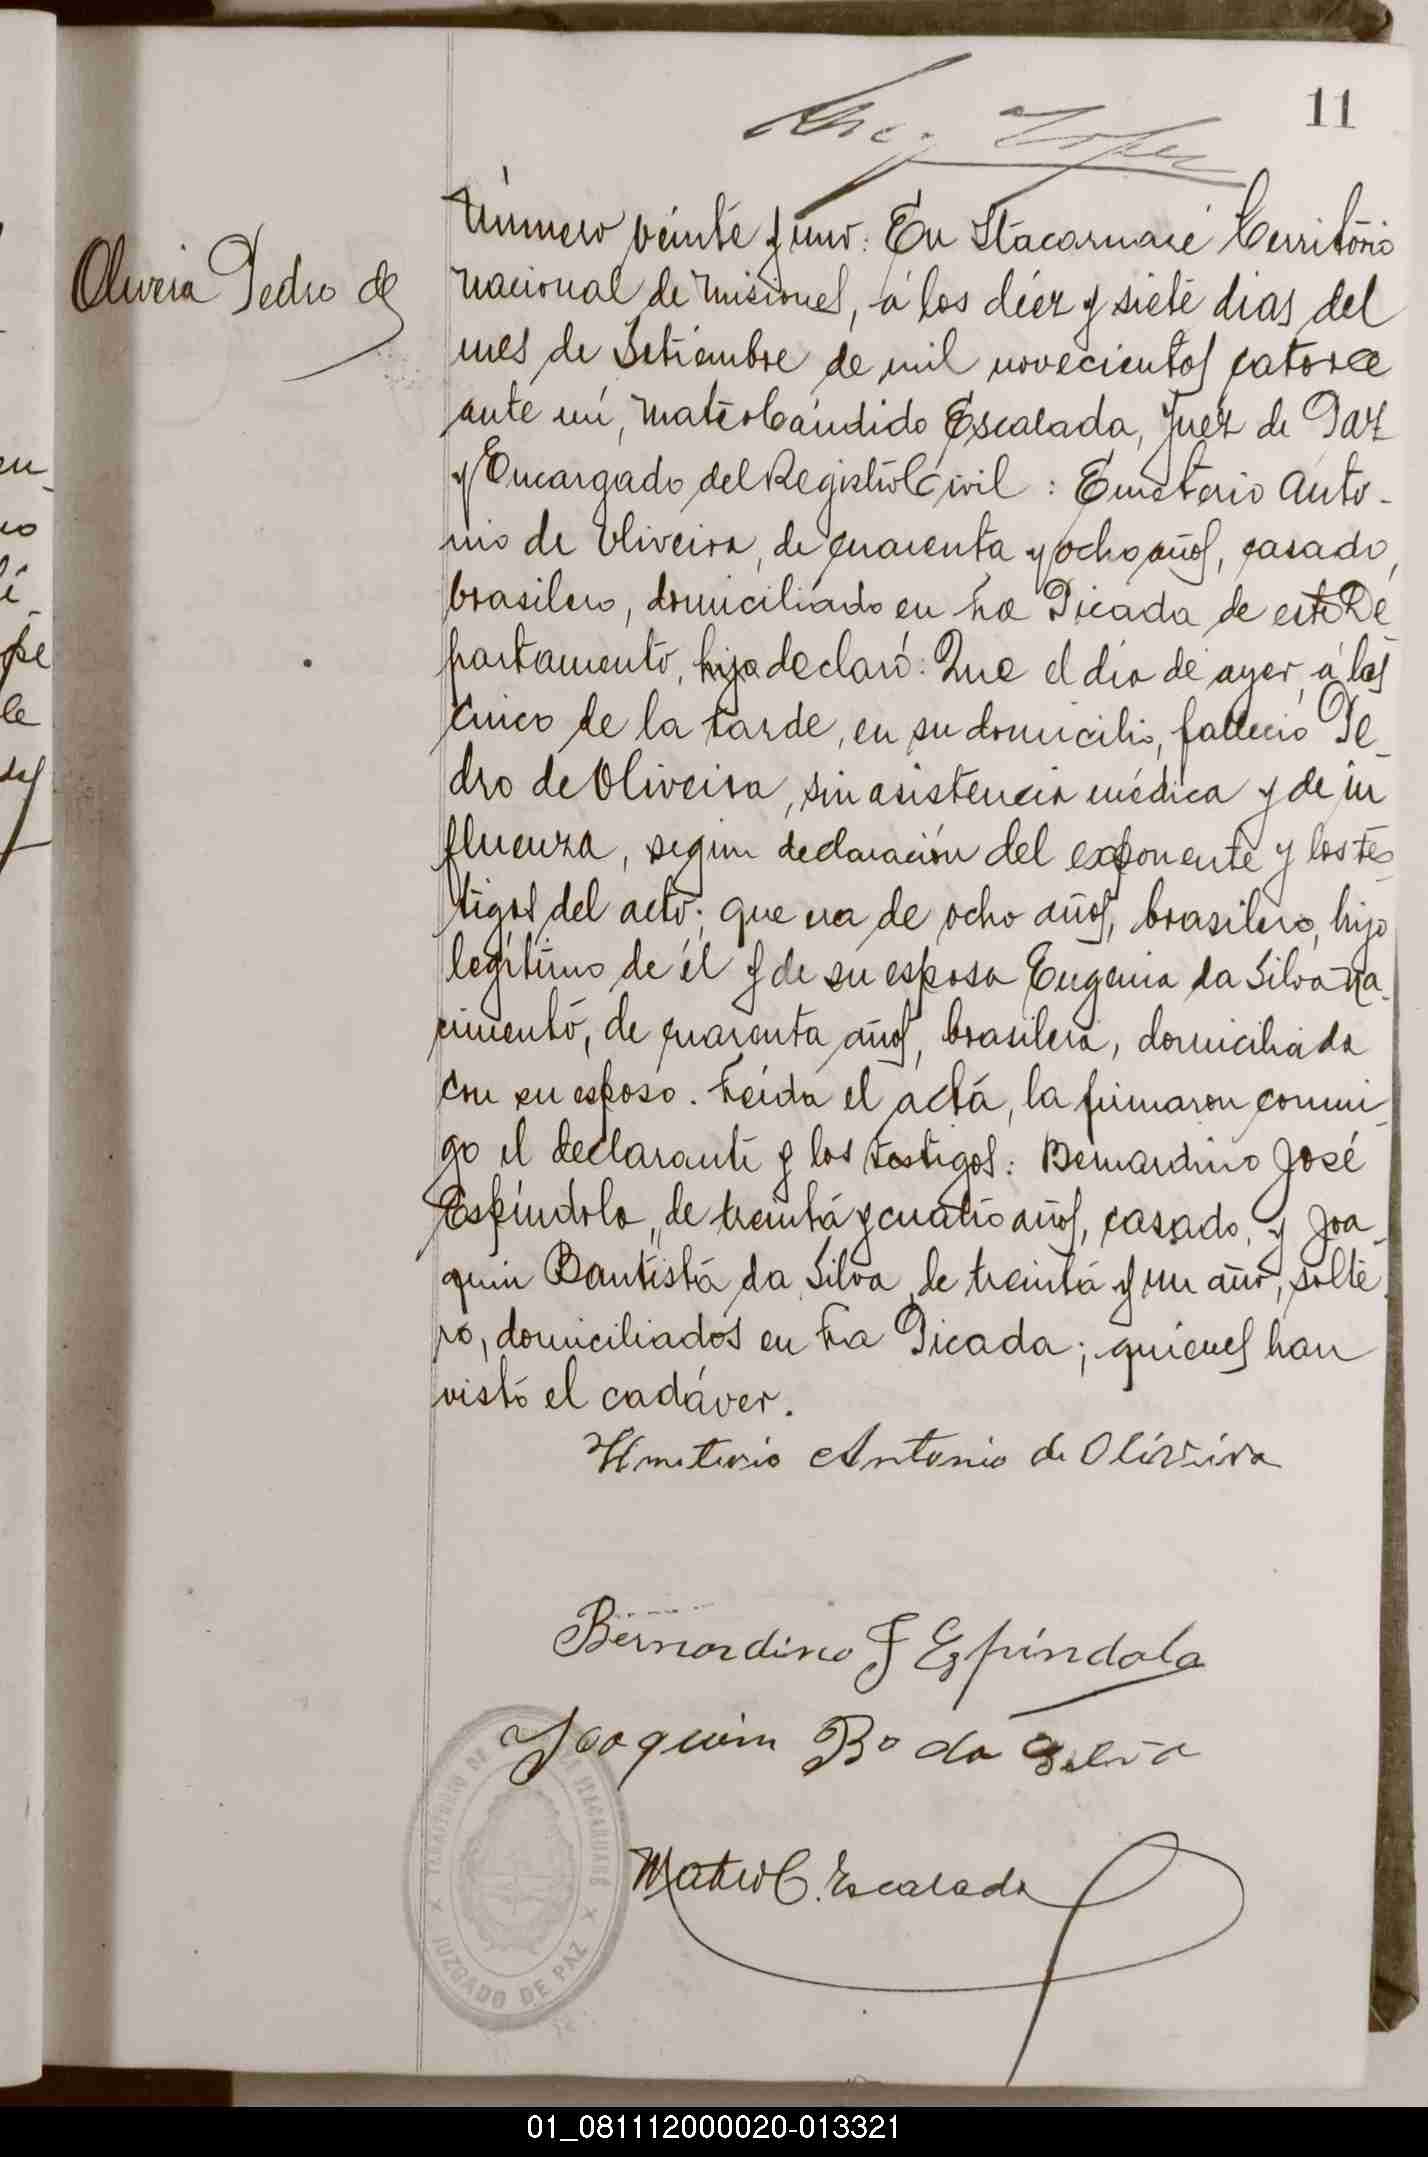 11
Lopez
Oliveira Pedro de
Número veinte y uno: En Itacaruaré Territorio
Nacional de Misiones, á los diez y siete dias del
mes de Setiembre de mil novecientos catorce
ante mí, Mateo Cándido Escalada, Juez de Paz
y Encargado del Registro Civil: Emeterio Anto-
nio de Oliveira, de cuarenta y ocho años, casado,
brasilero, domiciliado en La Picada de este De
partamento, hijo declaró: Que el día de ayer, á las
cinco de la tarde, en su domicilio, falleció Pe-
dro de Oliveira, sin asistencia médica y de in
fluenza, segun declaración del exponente y los tes-
tigos del acto; que era de ocho años, brasilero, hijo
legítimo de él y de su esposa Eugenia da Silva Na-
cimento, de cuarenta años, brasilera, domiciliada
con su esposo. Leida el acta, la firmaron conmi-
go el declarante y los testigos: Bernardino José
Espíndola, de treinta y cuatro años, casado, y Joa-
quin Bautista da Silva, de treinta y un año, solte-
ro, domiciliados en La Picada; quienes han
visto el cadáver.
Hmeterio Antonio de Oliveira
Bernardino J Espíndola
Joaquim Bº da Silva
Mateo C. Escalada
TERRITORIO DE ITACARUARÉ
JUZGADO DE PAZ
01_081112000020-013321